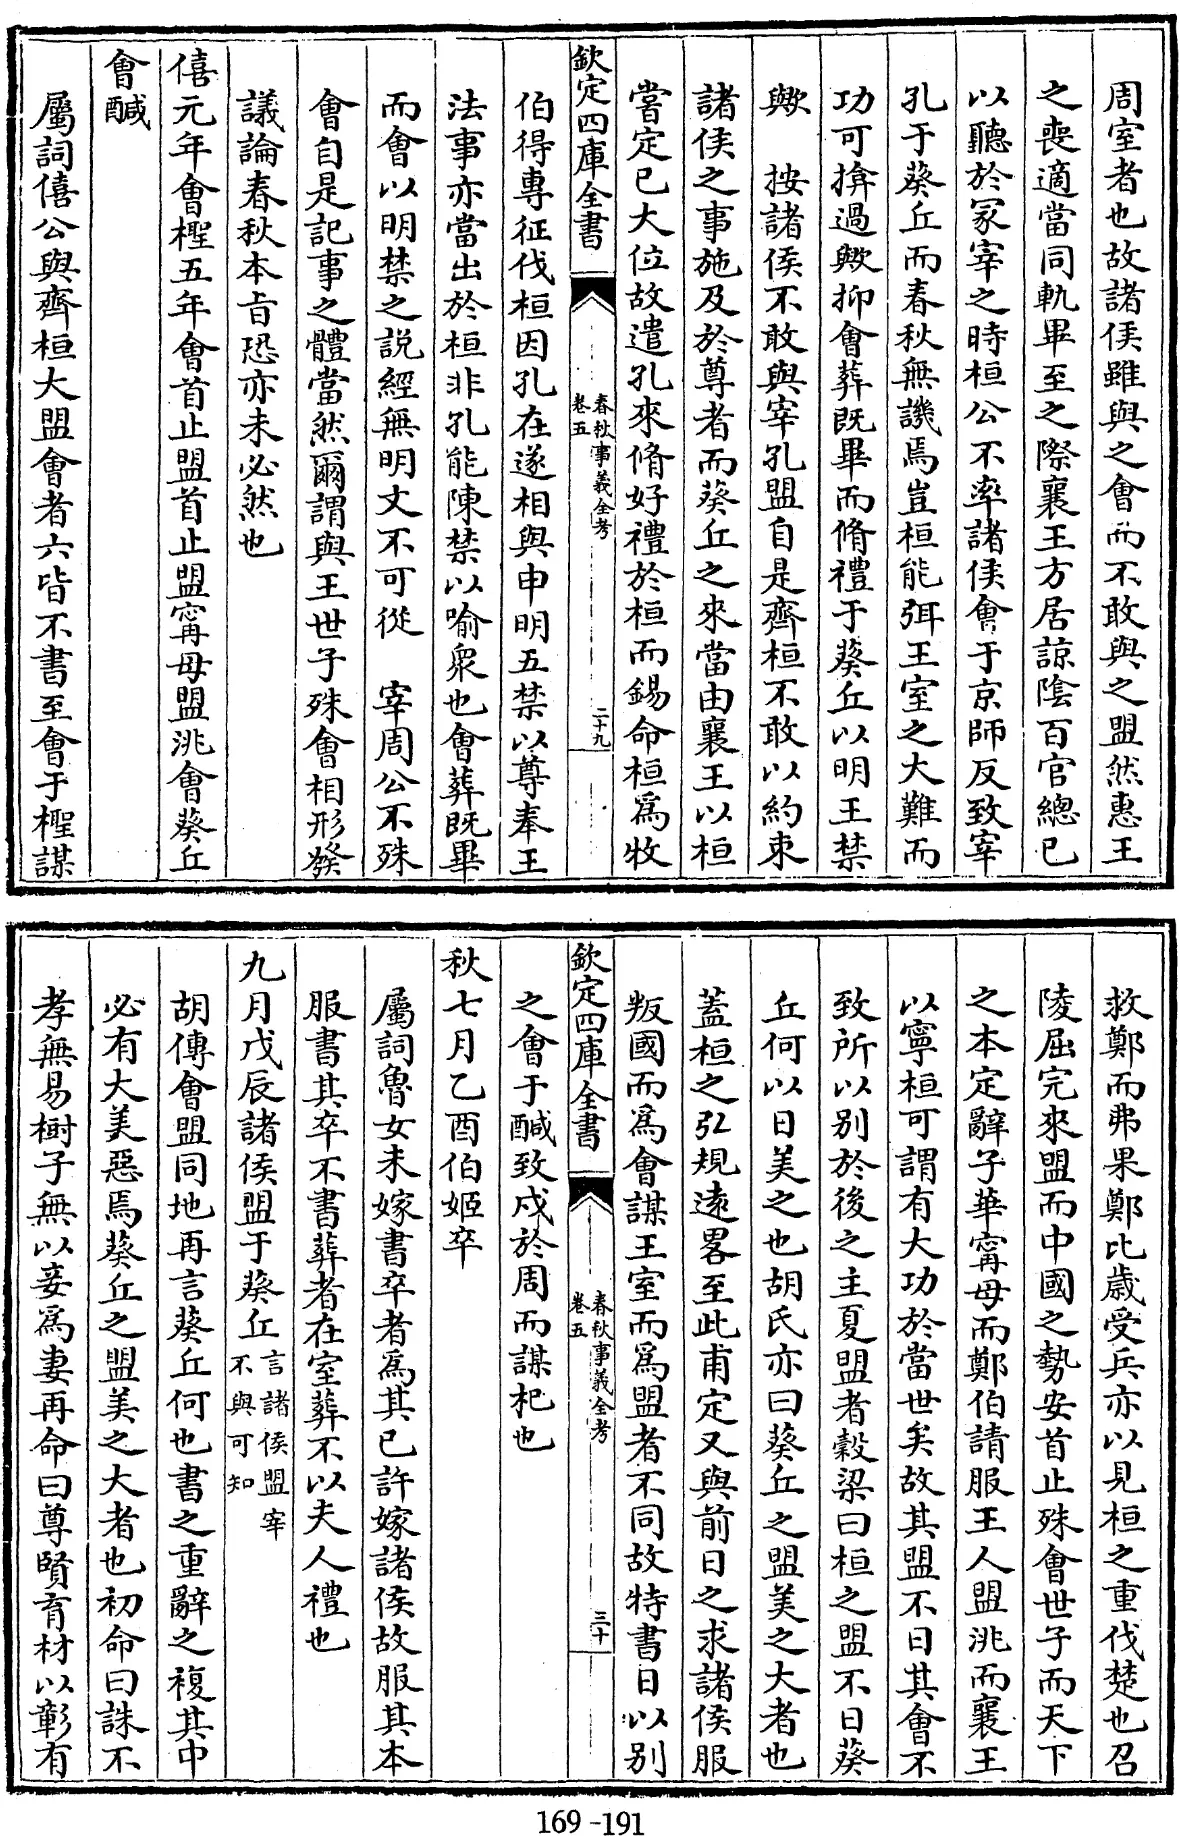 周室者也故諸侯雖與之會而不敢與之盟然惠王
之喪適當同軌畢至之際襄王方居諒陰百官總己
以聽於冢宰之時桓公不率諸侯會于京師反致宰
孔于葵丘而春秋無譏焉豈桓能弭王室之大難而
功可揜過歟抑會葬既畢而脩禮于葵丘以明王禁
歟　按諸侯不敢與宰孔盟自是齊桓不敢以約束
諸侯之事施及於尊者而葵丘之來當由襄王以桓
嘗定已大位故遣孔來脩好禮於桓而錫命桓為牧
欽定四庫全書
春秋事義全考
卷五
二十九
伯得專征伐桓因孔在遂相與申明五禁以尊奉王
法事亦當出於桓非孔能陳禁以喻衆也會葬既畢
而會以明禁之説經無明文不可從　宰周公不殊
會自是記事之體當然爾謂與王世子殊會相形發
議論春秋本旨恐亦未必然也
僖元年會檉五年會首止盟首止盟甯母盟洮會葵丘
會鹹
屬詞僖公與齊桓大盟會者六皆不書至會于檉謀
救鄭而弗果鄭比歲受兵亦以見桓之重伐楚也召
陵屈完來盟而中國之勢安首止殊會世子而天下
之本定辭子華甯母而鄭伯請服王人盟洮而襄王
以寧桓可謂有大功於當世矣故其盟不日其會不
致所以別於後之主夏盟者穀梁曰桓之盟不日葵
丘何以日美之也胡氏亦曰葵丘之盟美之大者也
蓋桓之弘規遠畧至此甫定又與前日之求諸侯服
叛國而為會謀王室而為盟者不同故特書日以別
欽定四庫全書
春秋事義全考
卷五
三十
之會于鹹致戍於周而謀杞也
秋七月乙酉伯姬卒
屬詞魯女未嫁書卒者為其已許嫁諸侯故服其本
服書其卒不書葬者在室葬不以夫人禮也
九月戊辰諸侯盟于葵丘言諸侯盟宰
不與可知
胡傳會盟同地再言葵丘何也書之重辭之複其中
必有大美惡焉葵丘之盟美之大者也初命曰誅不
孝無易樹子無以妾為妻再命曰尊賢育材以彰有
169-191